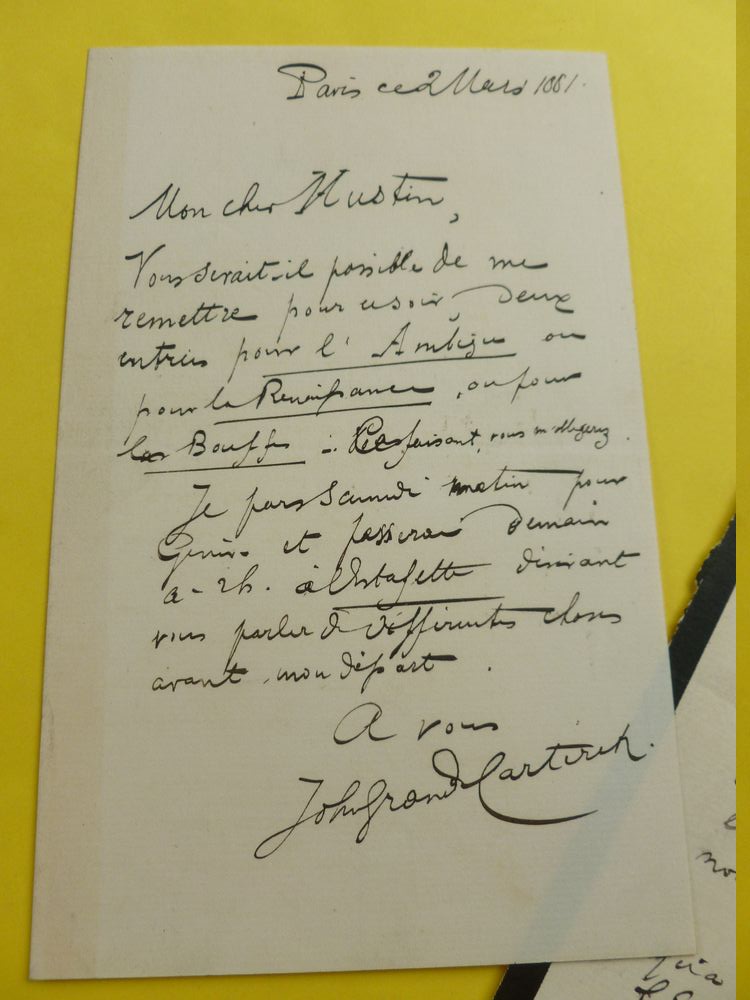 Paris ce 2 Mars 1881.
Mon cher Hustin,
Vous serait-il possible de me
remettre pour ce soir, deux
entrées pour l'Ambigu ou
pour la Renaissance, ou pour
les Bouffes. Ce faisant, vous m'obligerez.
Je pars Samedi matin pour
Genève et passerai demain
à 2h. à l'Estafette désirant
vous parler de différentes choses
avant mon départ.
A vous
John Grand Carteret.